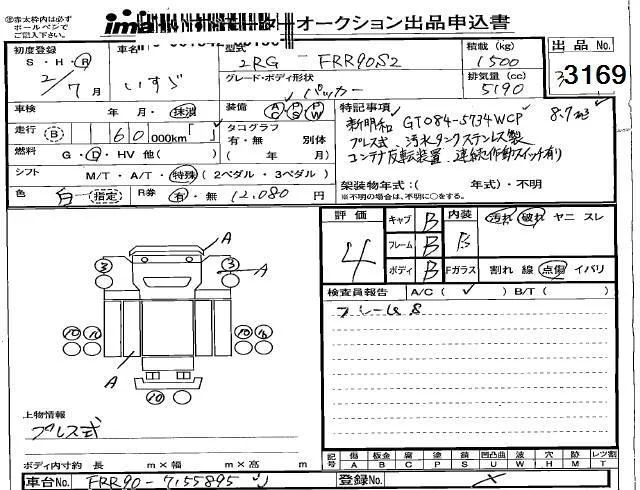 ※赤太枠内は必ず
ボールペンで
ご記入下さい。
ima オークション出品申込書
初度登録 S・H・R 2/7月
車名 いすゞ
型式 2RG-FRR90S2
積載(kg) 1500
出品No. 3169
グレード・ボディ形状 パッカー
排気量(cc) 5190
車検 年 月・抹消
装備 AC PS PW
特記事項
走行 B 60,000km
タコグラフ 有・無 別体 ( 年 月)
燃料 G・D・HV 他( )
新明和 GT084-5734WCP 8.7m3
プレス式 汚水タンクステンレス製
コンテナ反転装置 連続作動スイッチ有り
シフト M/T・A/T・特殊(2ペダル・3ペダル)
架装物年式:( 年式)・不明
※不明の場合は、不明に○をする。
色 白 指定
R券 有・無 12,080
評価 4
キャブ B
フレーム B
ボディ B
内装 B
汚れ 破れ ヤニ スレ
Fガラス 割れ 線 点傷 イバリ
検査員報告 A/C(✓) B/T( )
フレームS
A
3 3 A
10 10 10 16
A
10
上物情報
プレス式
ボディ内寸約 長 m×幅 m×高 m
記号 傷A 板金B 腐C 塗P 錆S 凹凸曲U 波W 穴H 跡M レツ割T
車台No. FRR90-7155895
登録No.